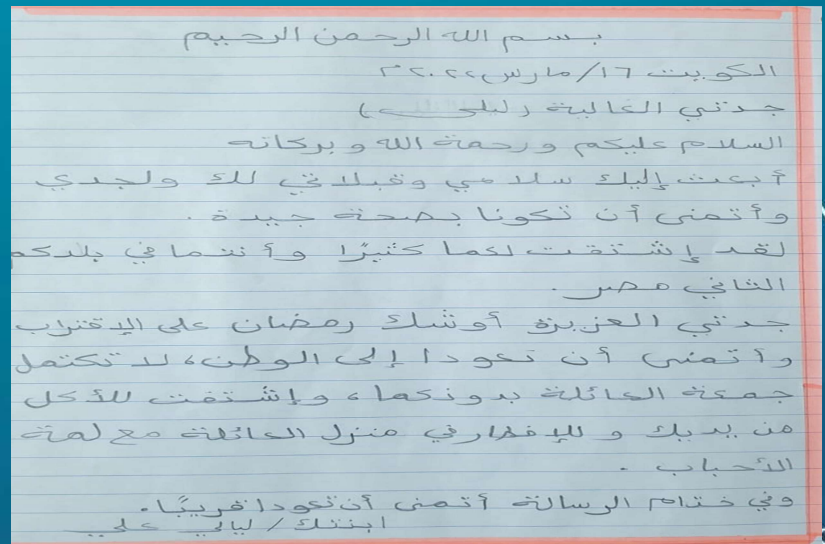 بسم الله الرحمن الرحيم
الكويت ١٦/مارس ٢٠٢٢م
جدتي الغالية (ليلى)
السلام عليكم ورحمة الله وبركاته
أبعث إليك سلامي وقبلاتي لك ولجدي
وأتمنى أن تكونا بصحة جيدة.
لقد إشتقت لكما كثيرًا وأنتما في بلدكم
الثاني مصر.
جدتي العزيزة أوشك رمضان على الإقتراب
وأتمنى أن تعودا إلى الوطن، لا تكتمل
جمعة العائلة بدونكما، وإشتقت للأكل
من يديك و للإفطار في منزل العائلة مع لمة
الأحباب.
وفي ختام الرسالة أتمنى أن تعودا قريبًا.
ابنتك/ ليالي علي